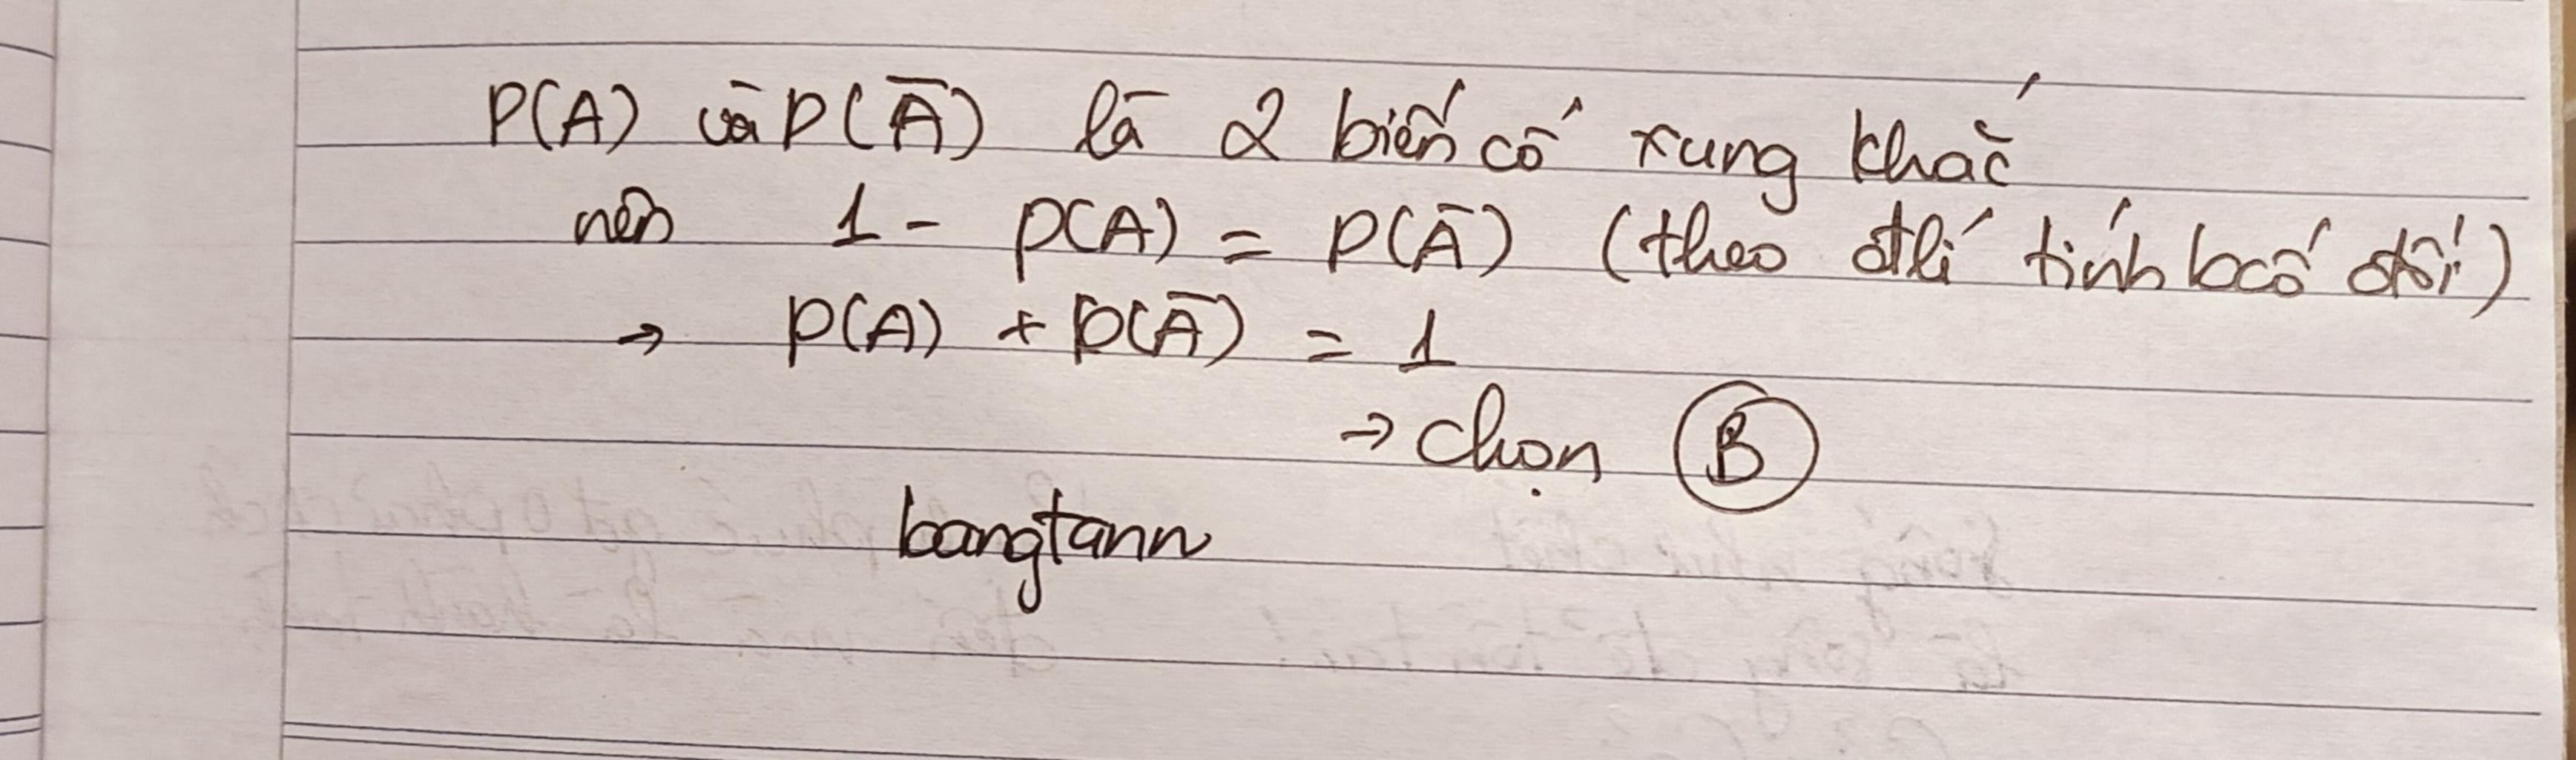 P(A) và P(Ā) là 2 biến cố xung khắc
nên 1 - P(A) = P(Ā) (theo đlí tính bcố đối)
→ P(A) + P(Ā) = 1
→ chọn B
bangtann